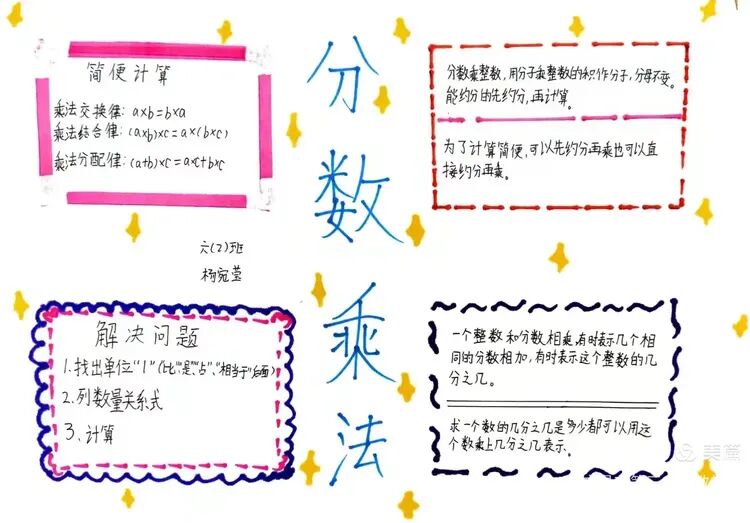 简便计算
乘法交换律：a×b=b×a
乘法结合律：(a×b)×c=a×(b×c)
乘法分配律：(a+b)×c=a×c+b×c
分数乘法
分数乘整数，用分子乘整数的积作分子，分母不变。
能约分的先约分，再计算。
为了计算简便，可以先约分再乘也可以直
接约分再乘。
六(2)班
杨宛莹
解决问题
1.找出单位“1”(“比”“是”“占”、“相当于”后面)
2.列数量关系式
3、计算
一个整数和分数相乘，有时表示几个相
同的分数相加，有时表示这个整数的几
分之几。
求一个数的几分之几是多少都可以用这
个数乘上几分之几表示。
美篇